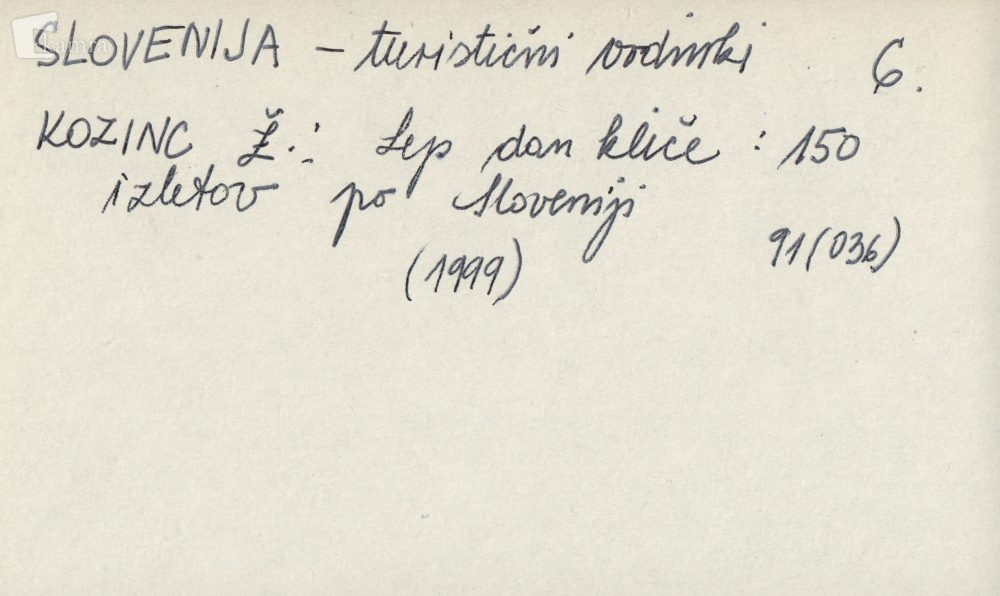 SLOVENIJA – turistični vodniki 6.
KOZINC Ž.: Lep dan kliče : 150
izletov po Sloveniji
(1999) 91(036)
Kamra